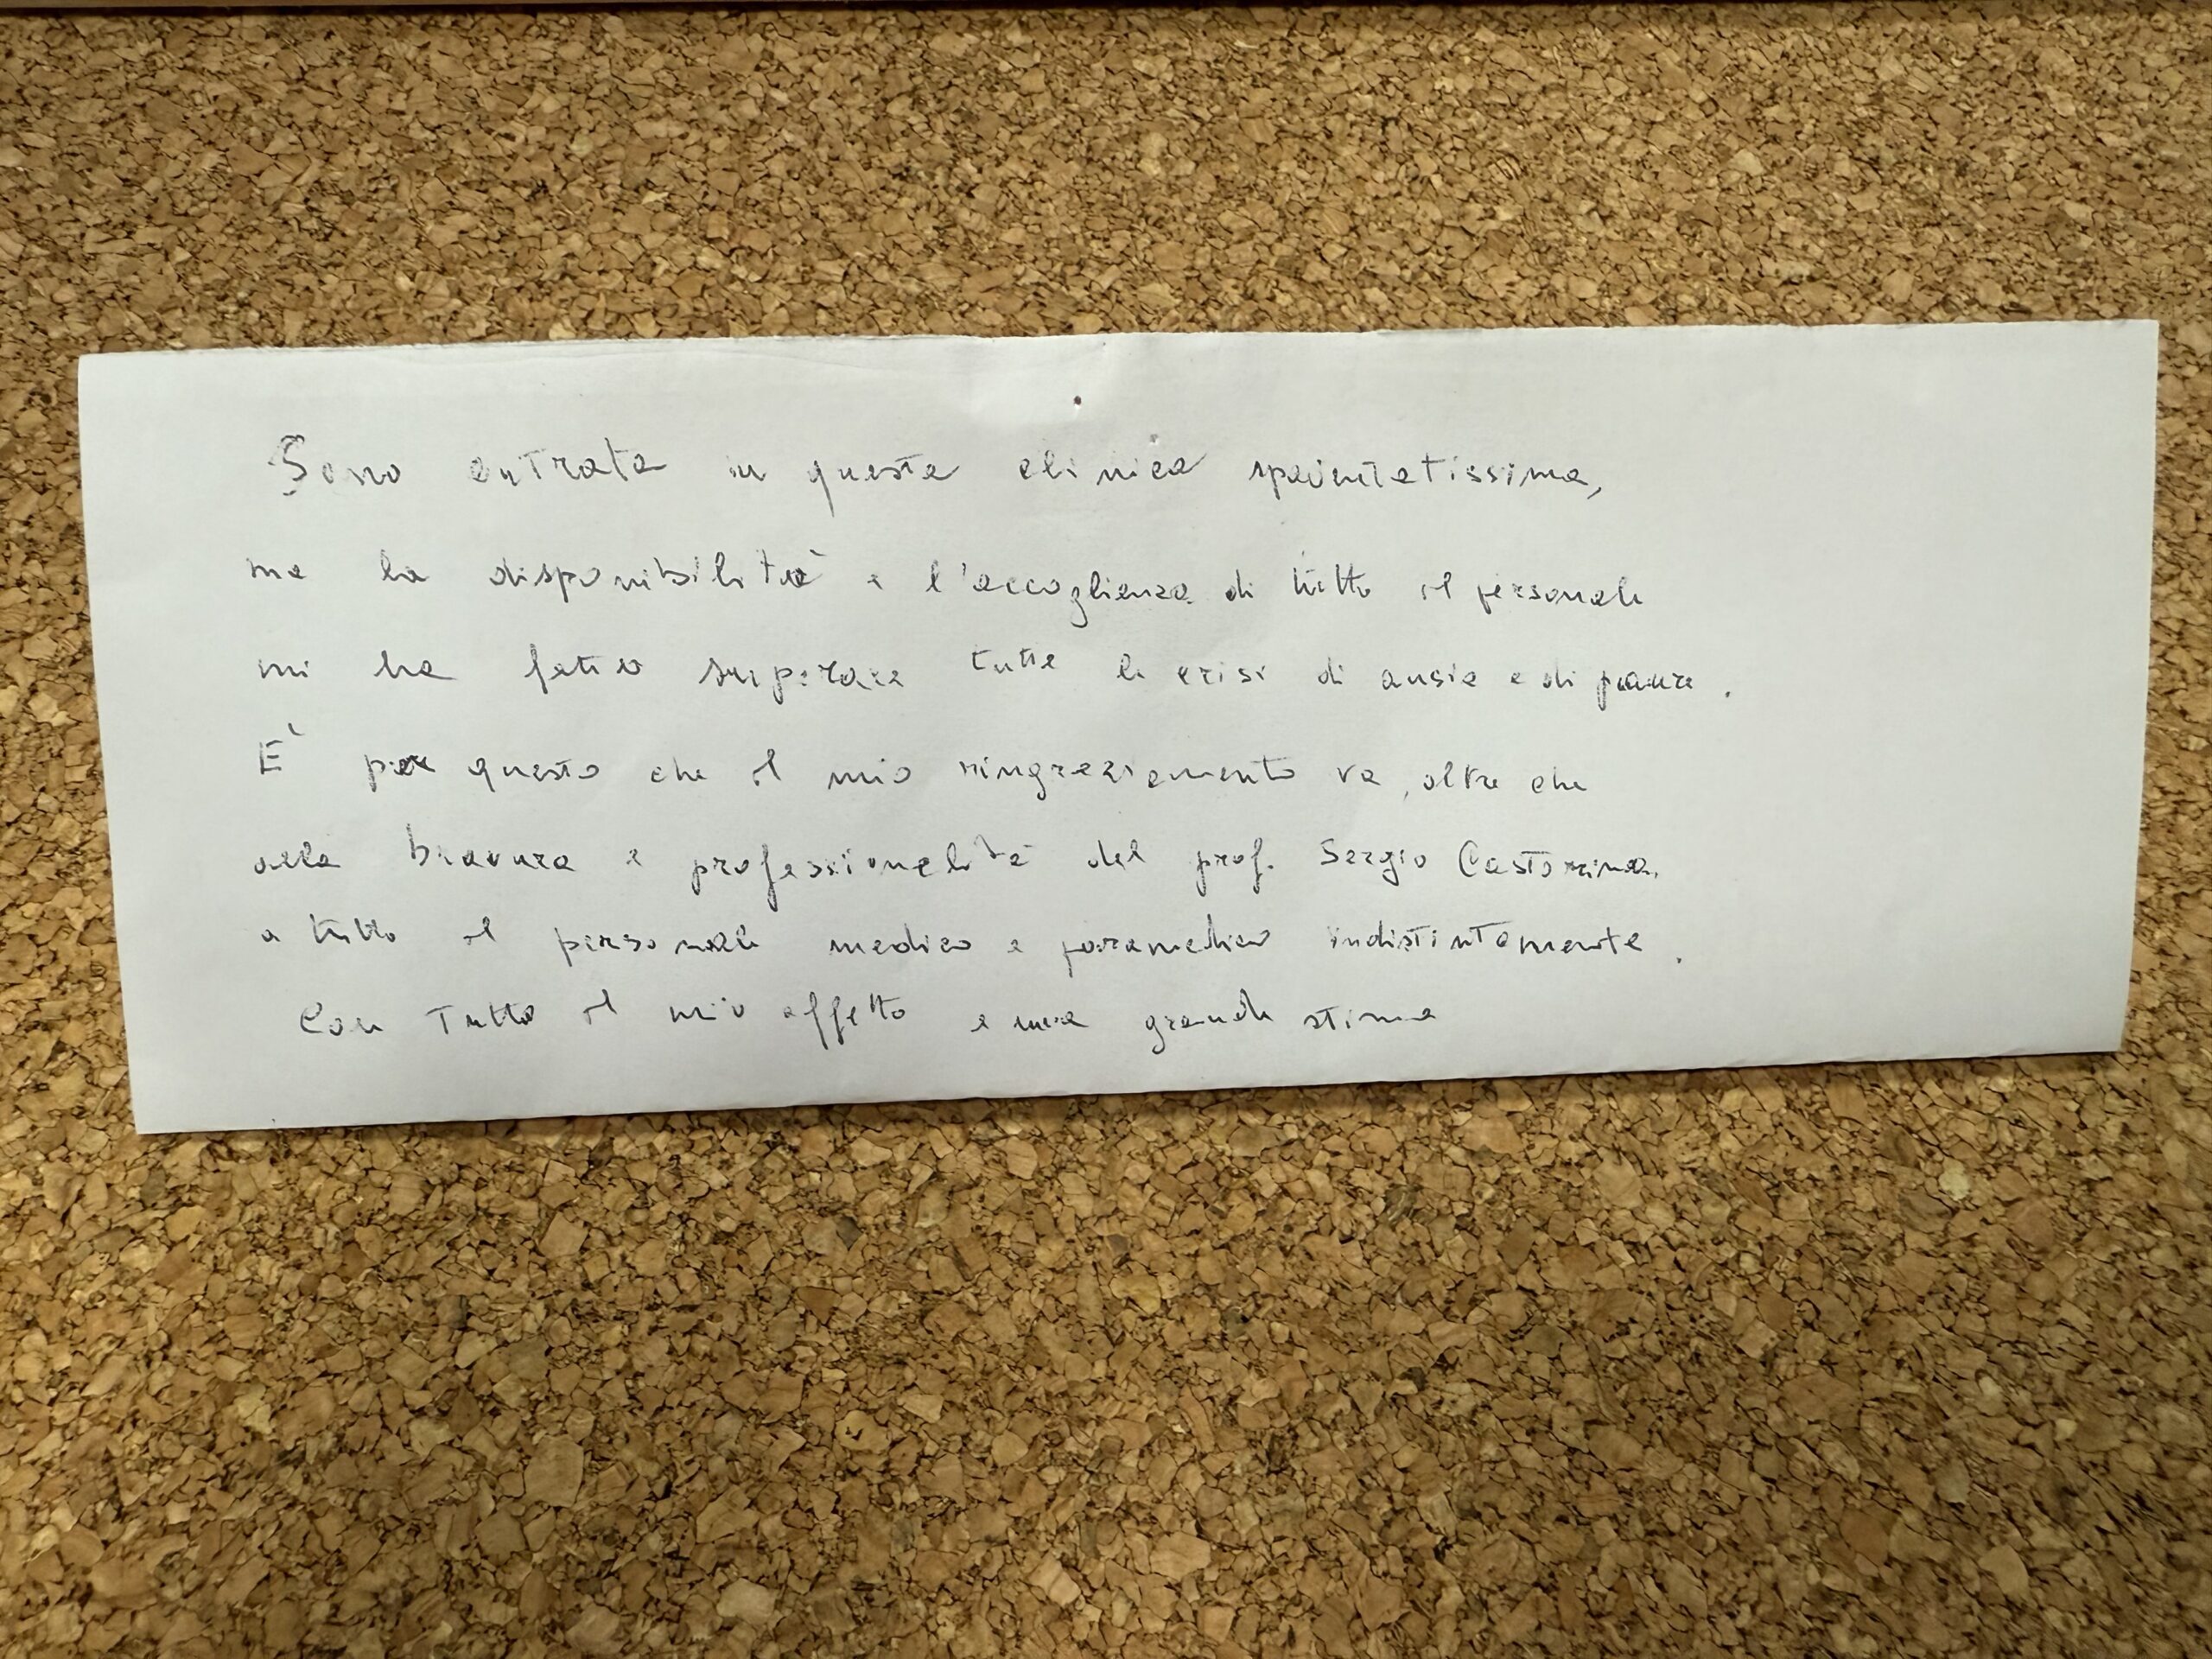 Sono entrata in questa clinica spaventatissima,
ma la disponibilità e l'accoglienza di tutto il personale
mi ha fatto superare tutte le crisi di ansia e di paura.
E' per questo che il mio ringraziamento va, oltre che
alla bravura e professionalità del prof. Sergio Castorina,
a tutto il personale medico e paramedico indistintamente.
Con tutto il mio affetto e una grande stima